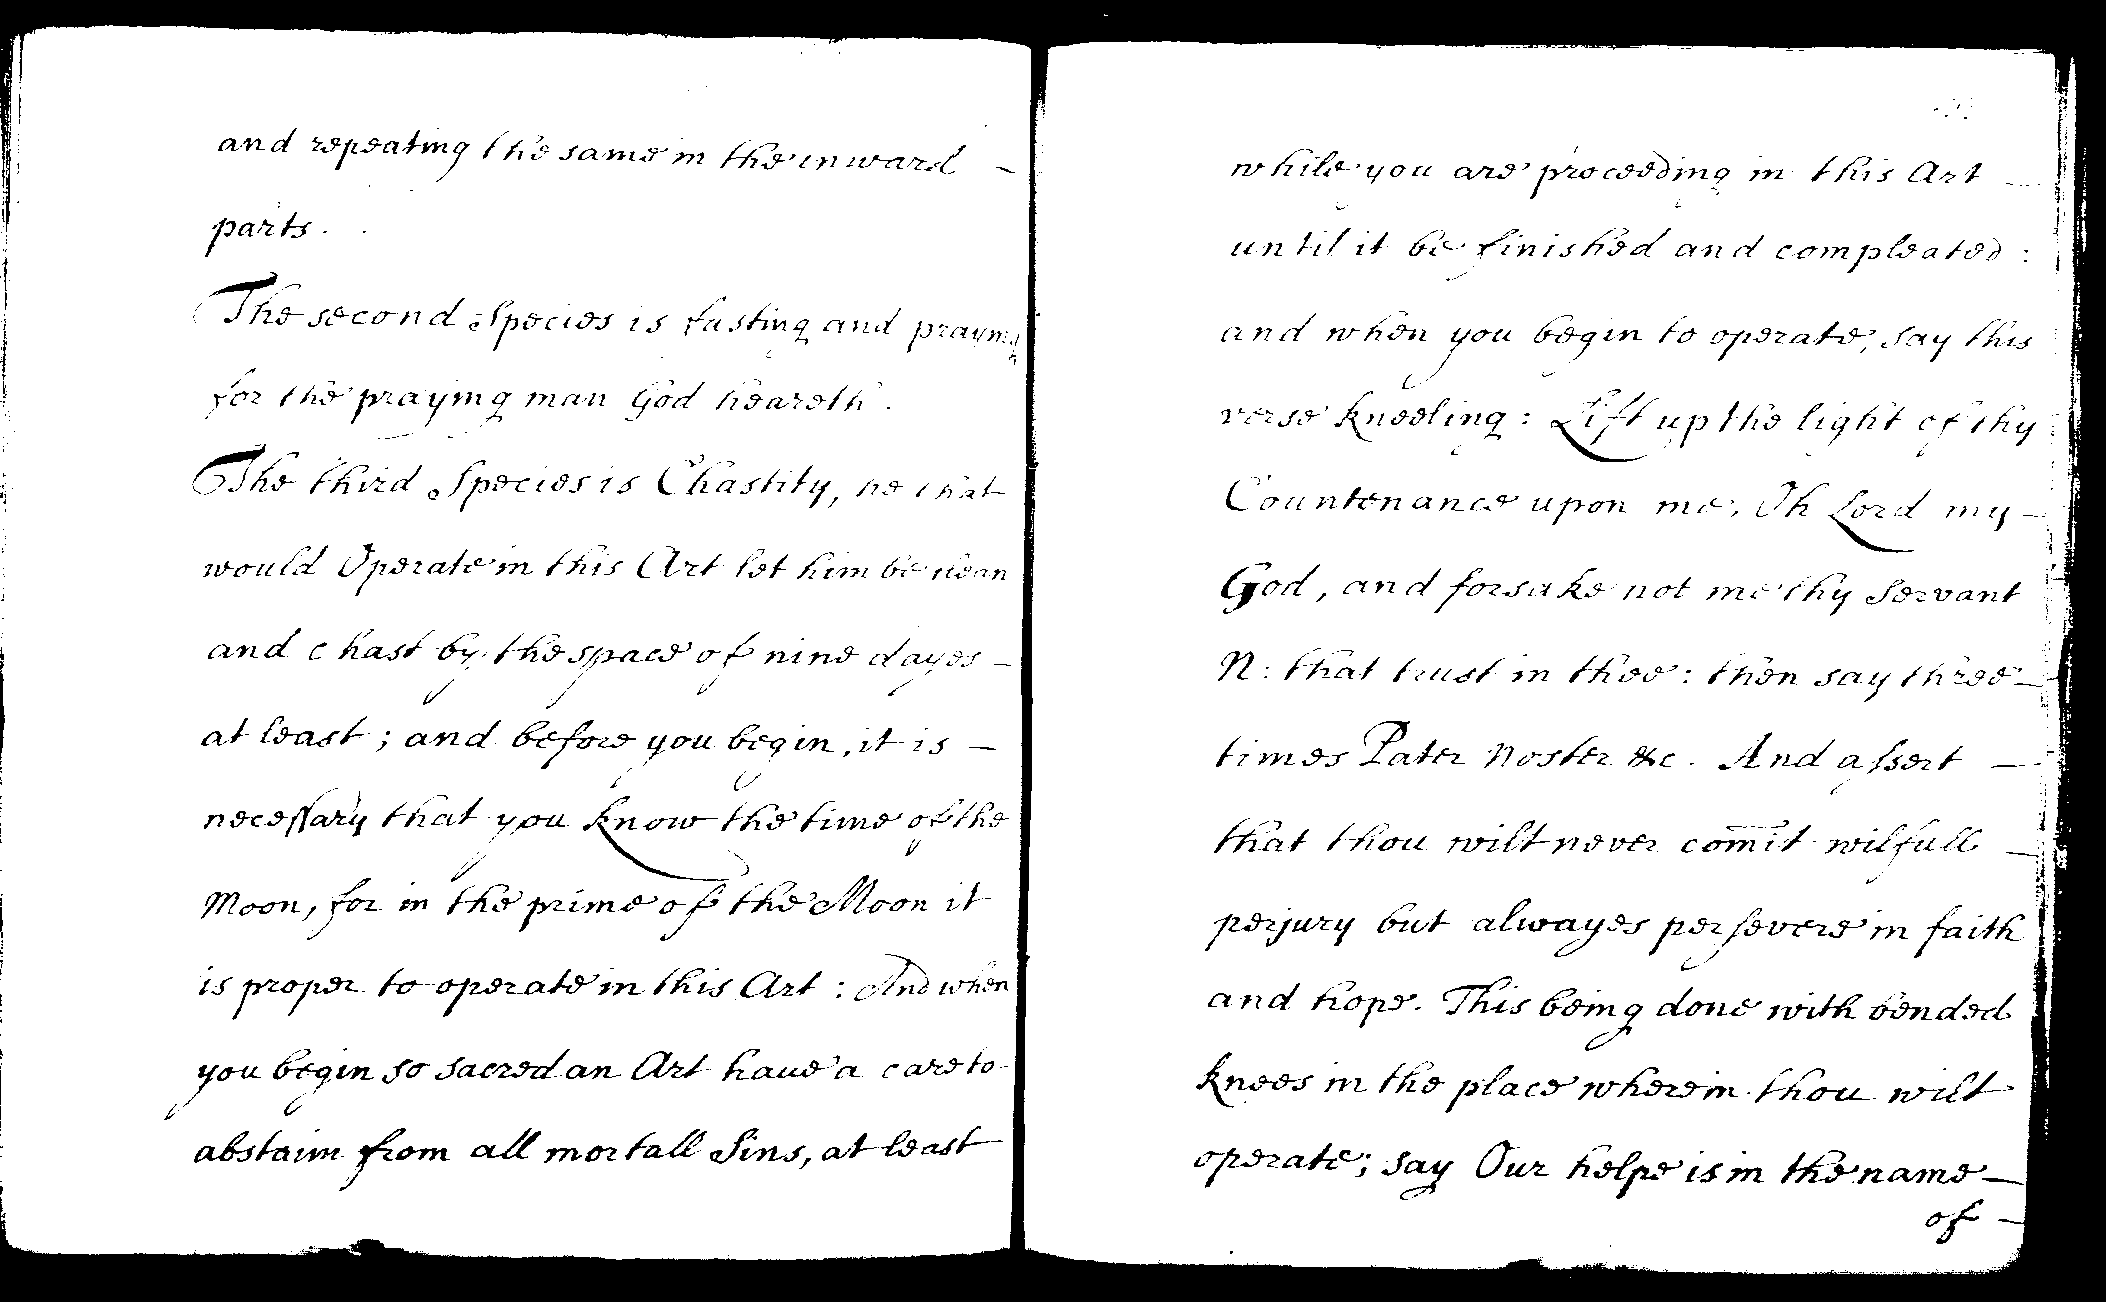 and repeating the same in the inward –
parts.
The second Species is fasting and praying
for the praying man God heareth.
The third Species is Chastity, he that
would Operate in this Art let him be clean
and chast by the space of nine dayes –
at least; and before you begin, it is –
necessary that you know the time of the
Moon, for in the prime of the Moon it
is proper to operate in this Art: And when
you begin so sacred an Art haue a care to
abstaim from all mortall Sins, at least
while you are proceeding in this Art –
until it be finished and compleated:
and when you begin to operate, say this
verse kneeling: Lift up the light of thy
Countenance upon me, Oh Lord my –
God, and forsake not me thy Servant
N: that trust in thee: then say three –
times Pater Noster &c. And assert –
that thou wilt never com̄it wilfull –
perjury but alwayes persevere in faith
and hope. This being done with bended
knees in the place wherein thou wilt
operate; say Our helpe is in the name –
of –